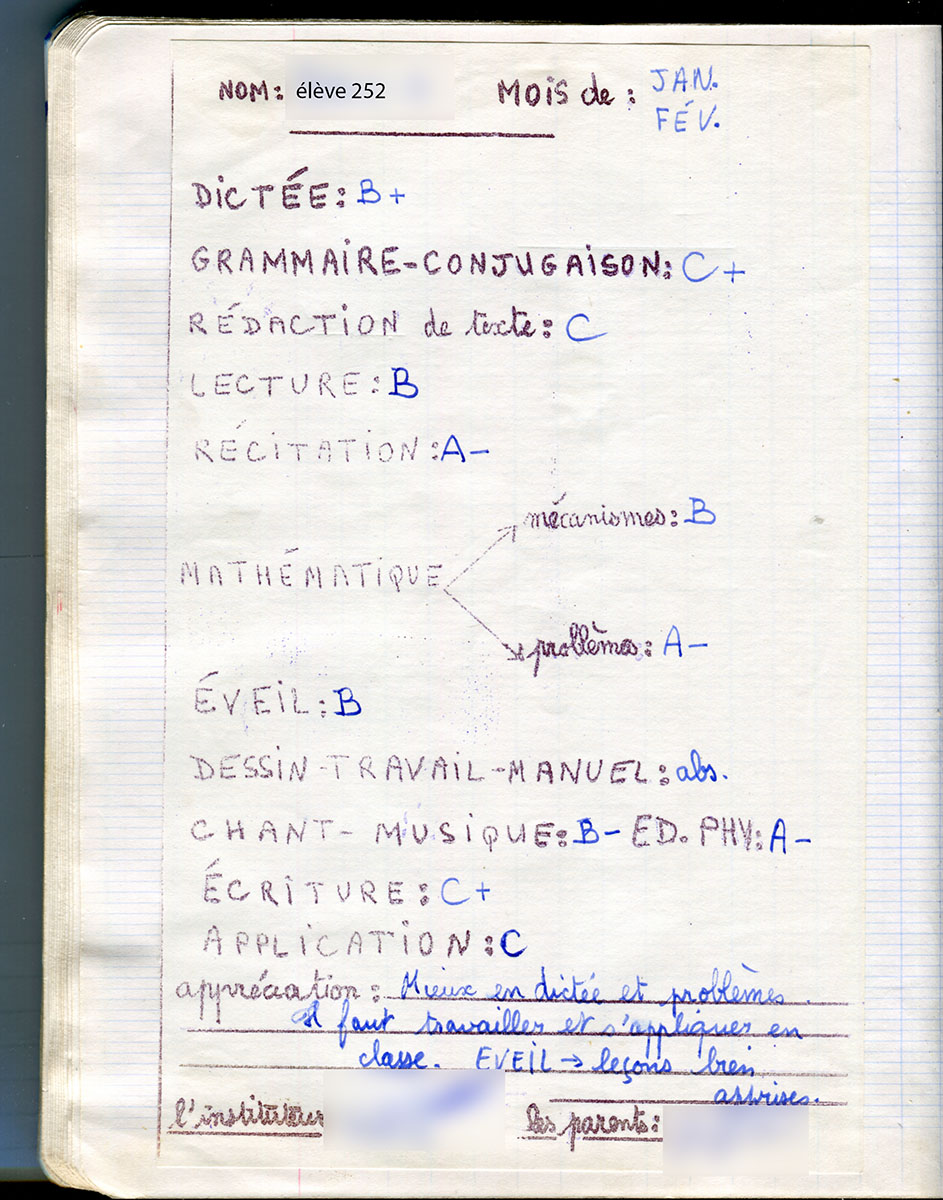 NOM: élève 252 MOIS de : JAN.
FÉV.
DICTÉE: B+
GRAMMAIRE-CONJUGAISON: C+
RÉDACTION de texte: C
LECTURE: B
RÉCITATION: A-
mécanismes: B
MATHÉMATIQUE
problèmes: A-
ÉVEIL: B
DESSIN-TRAVAIL-MANUEL: abs.
CHANT-MUSIQUE: B- ED. PHY: A-
ÉCRITURE: C+
APPLICATION: C
appréciation: Mieux en dictée et problèmes.
Il faut travailler et s'appliquer en
classe. EVEIL → leçons bien
apprises.
l'instituteur
Les parents: